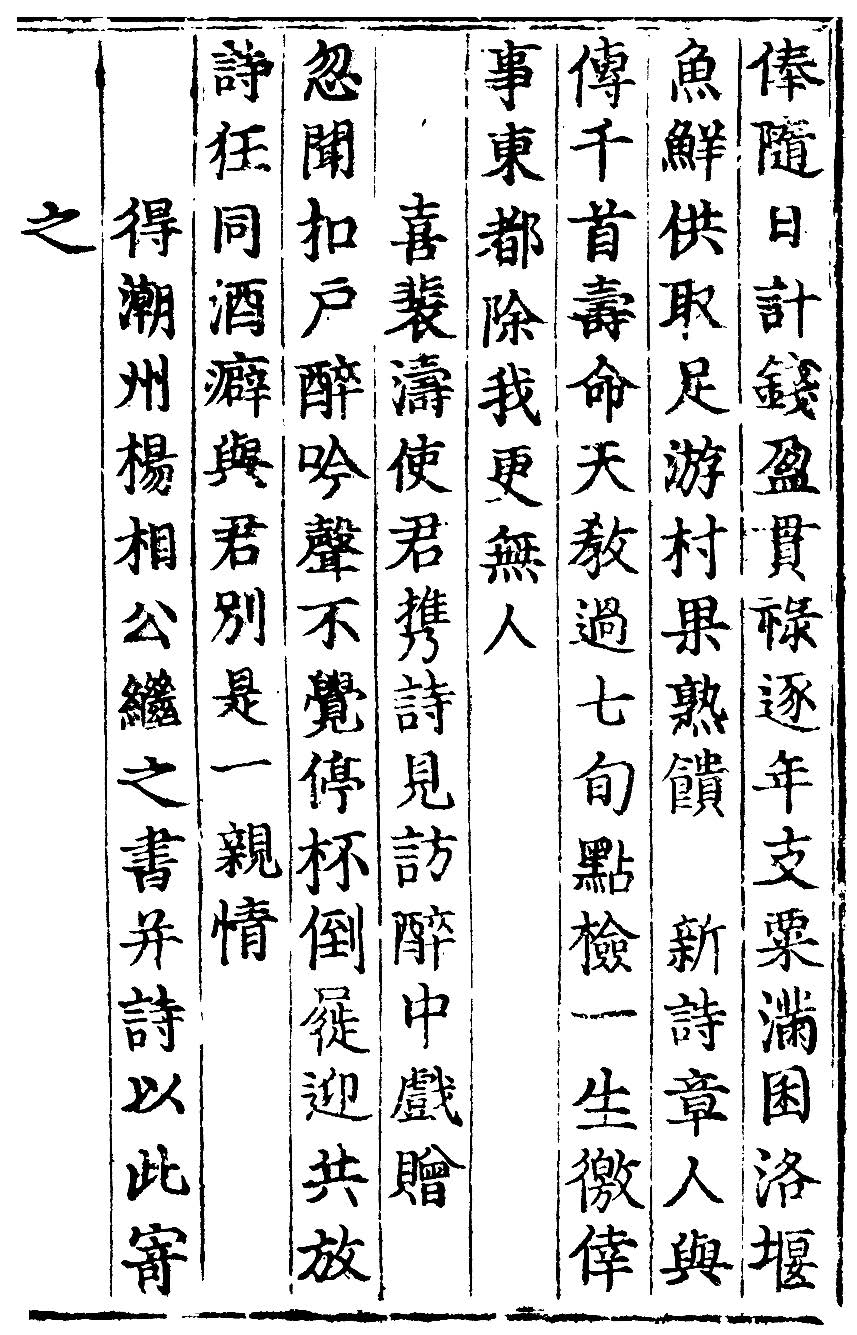 俸隨日計錢盈貫祿逐年支粟滿囷洛堰
魚鮮供取足游村果熟饋　新詩章人與
傳千首壽命天教過七旬點檢一生徼倖
事東都除我更無人
喜裴濤使君携詩見訪醉中戲贈
忽聞扣戶醉吟聲不覺停杯倒屣迎共放
詩狂同酒癖與君別是一親情
得潮州楊相公繼之書并詩以此寄
之